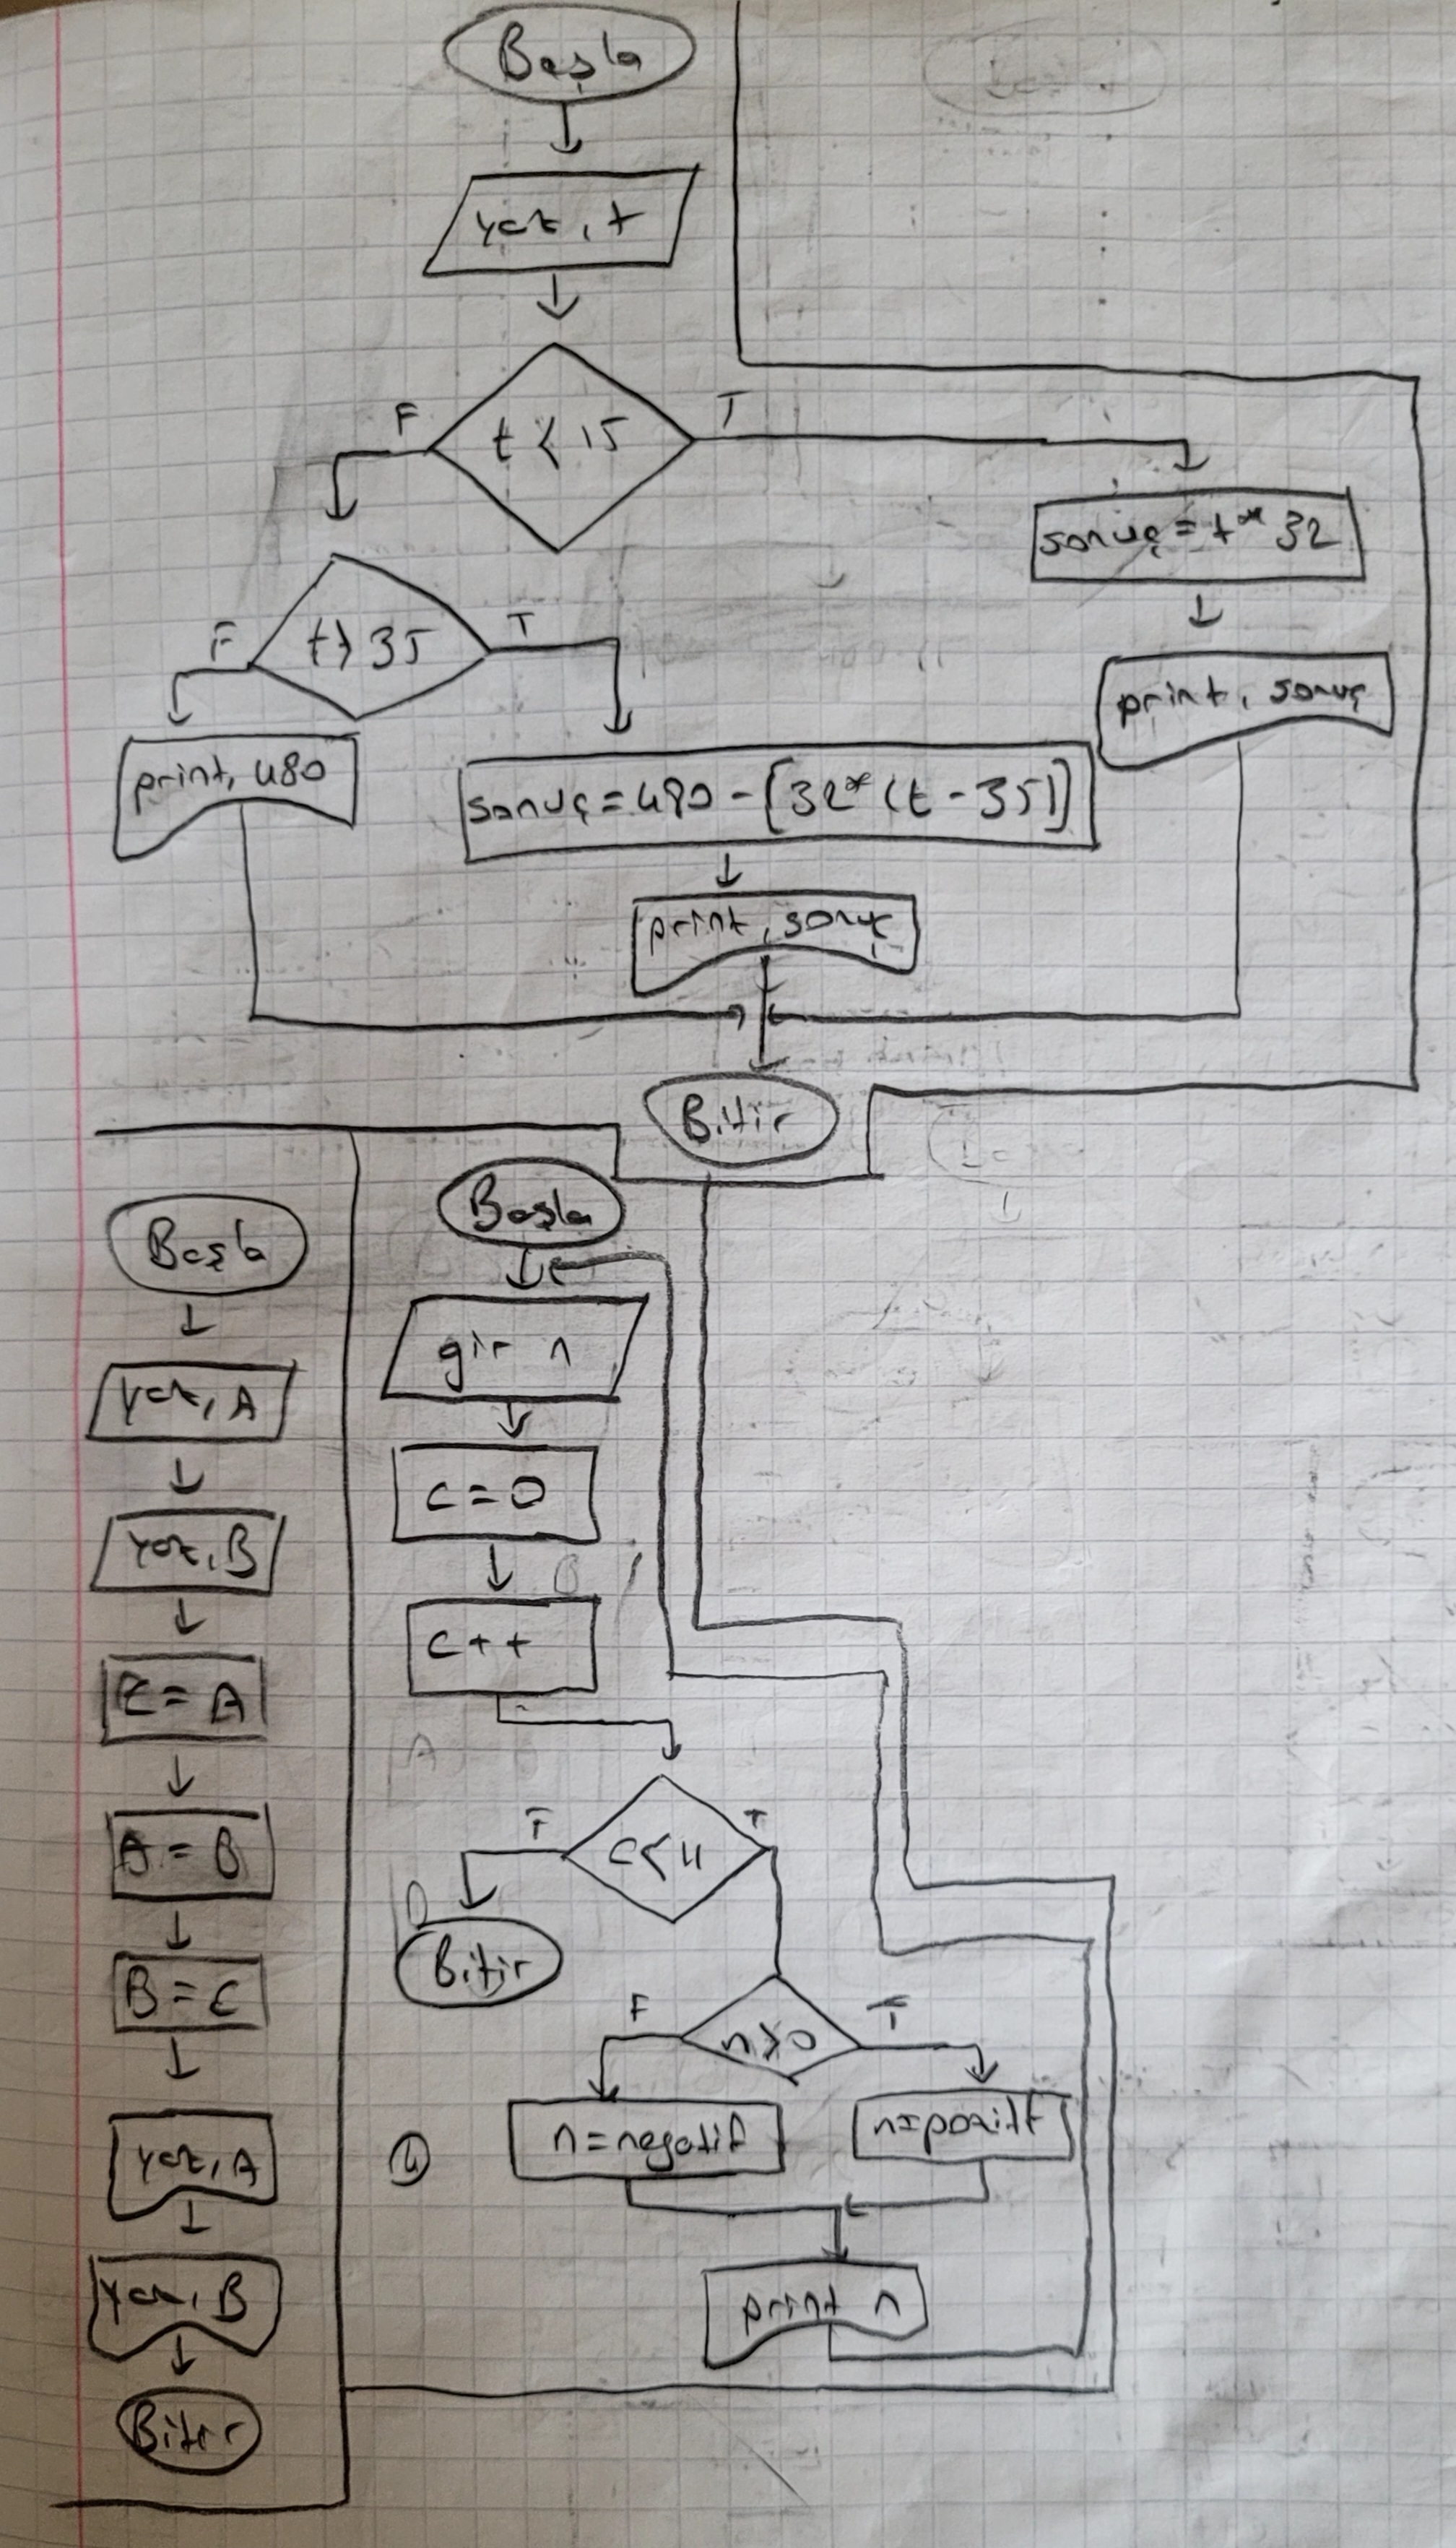 Başla
yaz, t
t < 15
F
T
sonuç = t * 32
t > 35
F
T
print, sonuç
print, 480
sonuç = 480 - [32 * (t - 35)]
print, sonuç
Bitir
Başla
yaz, A
yaz, B
C = A
A = B
B = C
yaz, A
yaz, B
Bitir
Başla
gir n
c = 0
c++
c < 11
F
T
Bitir
n > 0
F
T
n = negatif
n = pozitif
print n